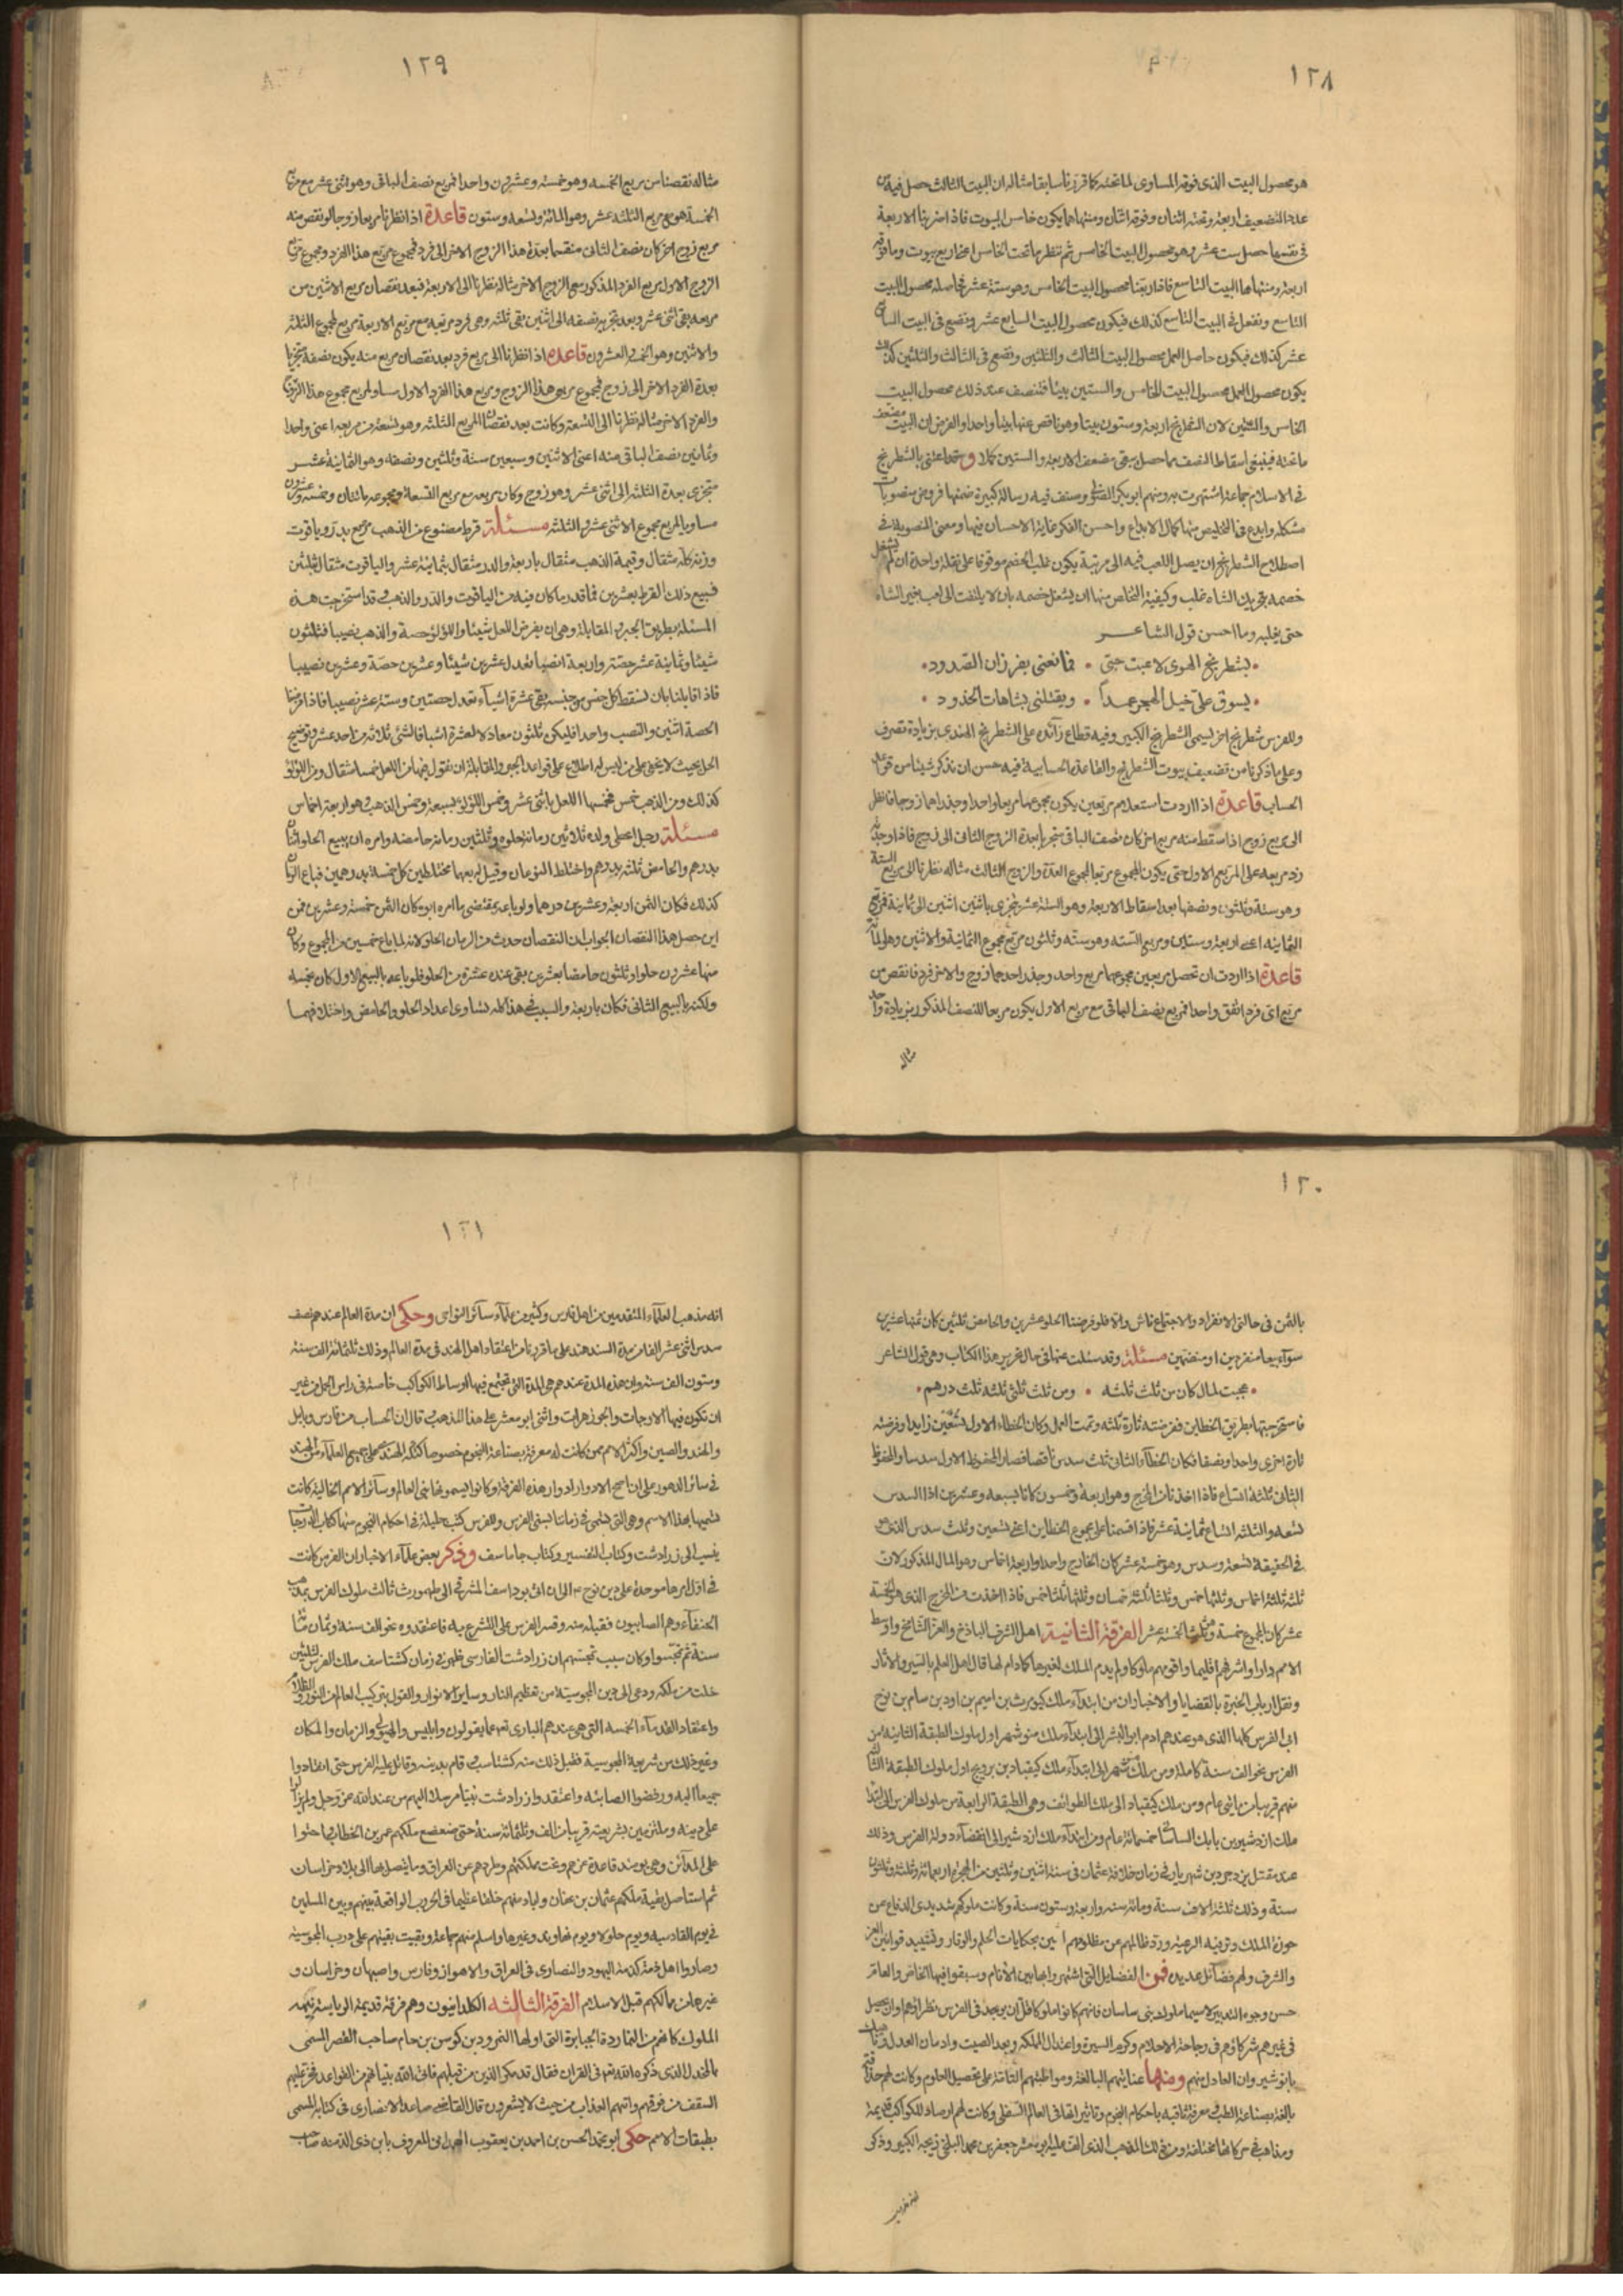 ١٢٨
هو محصول البيت الذى فوقه المساوى لما تحته كما قررنا سابقا مثاله ان البيت الثالث حصل فيه من
عدد التضعيف اربعة وتحته اثنان وفوقه اثنان ومنتهاهما يكون خامس البيوت فاذا ضربنا الاربعة
فى نفسها حصل ست عشر وهو محصول البيت الخامس ثم ننظر ما تحت الخامس اعنى اربع بيوت وما فوقه
اربعة ومنتهاها البيت التاسع فاذا ربعنا محصول البيت الخامس وهو ستة عشر فحاصله محصول البيت
التاسع ونفعل فى البيت التاسع كذلك فيكون محصول البيت السابع عشر ونضع فى البيت السابع
عشر كذلك فيكون حاصل العمل محصول البيت الثالث والثلثين ونضع فى الثالث والثلثين كذلك
يكون محصول العمل محصول البيت الخامس والستين بيتا فننصف عند ذلك محصول البيت
الخامس والستين لان الشطرنج اربعة وستون بيتا وهو ناقص عنها بيتا واحدا والفرض ان البيت مضعف
ما تحته فينبغى اسقاط النصف مما حصل يبقى مضعف الاربعة والستين كملا وممن اعتنى بالشطرنج
فى الاسلام جماعة اشتهرت به ومنهم ابو بكر الصولى وصنف فيه رسالة كبيرة ضمنها فروض منصوبات
مشكلة وابدع فى التخليص منها كمال الابداع واحسن الفكر غاية الاحسان فيها ومعنى المنصوبة فى
اصطلاح الشطرنج ان يصل اللعب فيه الى مرتبة يكون غلب الخصم موقوفا على نقلة واحدة ان لم يشغل
خصمه بتحريك الشاه غلب وكيفية التخلص منها ان يشغل خصمه بان لا يلتفت الى لعب بغير الشاه
حتى يغلبه وما احسن قول الشاعر
• بشطرنج الهوى لاعبت حبى • فمانعنى بفرزان الصدود •
• يسوق على خيل الهجر عمداً • ويقتلنى بشاهات الخدود •
وللفرس شطرنج اخر يسمى الشطرنج الكبير وفيه قطاع زائدة على الشطرنج الهندى بزيادة تصرف
وعلى ما ذكرنا من تضعيف بيوت الشطرنج والقاعدة الحسابية فيه حسن ان نذكر شيئا من قواعد
الحساب قاعدة اذا اردت استعلام مربعين يكون مجموعهما مربعا واحدا وجذراهما زوجا فانظر
الى مربع زوج اذا سقط منه مربع اخر كان نصف الباقى متجزيا بعدة الزوج الثانى الى زوج فاذا وجدته
زد مربعه على المربع الاول حتى يكون المجموع مربعا لمجموع العدة والزوج الثالث مثاله نظرنا الى مربع الستة
وهو ستة وثلثون ونصفها بعد اسقاط الاربعة وهو الستة عشر متجزى باثنين اثنين الى ثمانية فمربع
الثمانية اعنى اربعة وستين ومربع الستة وهو ستة وثلثون مربع مجموع الثمانية والاثنين وهو المائة
قاعدة اذا اردت ان تحصل مربعين مجموعهما مربع واحد وجذر احدهما زوج والاخر فرد فانقص من
مربع اى فرد اتفق واحدا فمربع نصف الباقى مع مربع الاول يكون مربعا للنصف المذكور بزيادة واحد
مثاله
١٢٩
مثاله نقصنا من مربع الخمسة وهو خمسة وعشرون واحدا فمربع نصف الباقى وهو اثنى عشر مع مربع
الخمسة هو مربع الثلثة عشر وهو المائة وتسعة وستون قاعدة اذا نظرنا مربعا زوجا لو نقص منه
مربع زوج اخر كان نصف الثانى منقسما بعدة هذا الزوج الاخر الى فرد فمجموع مربع هذا الفرد ومجموع مربع
الزوج الاول مربع الفرد المذكور مع الزوج الاخر مثاله نظرنا الى الاربعة فبعد نقصان مربع الاثنين من
مربعه بقى اثنى عشر وبعد تجزية نصفه الى اثنين بقى ثلثة وهى فرد مربعه مع مربع الاربعة مربع لمجموع الثلثة
والاثنين وهو الخمسة والعشرون قاعدة اذا نظرنا الى مربع فرد بعد نقصان مربع منه يكون نصفه متجزيا
بعدة الفرد الاخر الى زوج فمجموع مربعى هذا الزوج ومربع هذا الفرد الاول مساو لمربع مجموع هذا الزوج
والفرد الاخر مثاله نظرنا الى التسعة وكانت بعد نقصان المربع الثلثة وهو تسعة من مربعه اعنى واحدا
وثمانين نصف الباقى منه اعنى الاثنين وسبعين ستة وثلثين ونصفه وهو الثمانية عشر
متجزى بعدة الثلثة الى اثنى عشر وهو زوج وكان مربعه مع مربع التسعة ومجموعه مائتان وخمسة وعشرون
مساويا لمربع مجموع الاثنى عشر والثلثة مسئلة قرط مصنوع من الذهب مرصع بدر وياقوت
وزنه كله مثقال وقيمة الذهب مثقال باربعة والدر مثقال بثمانية عشر والياقوت مثقال بثلثين
فبيع ذلك القرط بعشرين فما قدر ما كان فيه من الياقوت والدر والذهب وقد استخرجت هذه
المسئلة بطريق الجبر والمقابلة وهى ان يفرض اللعل شيئا واللؤلؤ حصة والذهب نصيبا فثلثون
شيئا وثمانية عشر حصة واربعة انصبا تعدل عشرين شيئا وعشرين حصة وعشرين نصيبا
فاذا قابلنا بان نسقط كل جنس من جنسه بقى عشرة اشياء تعدل حصتين وستة عشر نصيبا فاذا فرضنا
الحصة اثنين والنصب واحدا فليكن ثلثون معادلا لعشرة اشيا فالشئ ثلاثة من احد عشر وتوضيح
الحل بحيث لا يخفى على من ليس له اطلاع على قواعد الجبر والمقابلة ان نقول فيها من اللعل خمسا مثقال ومن اللؤلؤ
كذلك ومن الذهب خمس فخمسها اللعل باثنى عشر وخمس اللؤلؤ بسبعة وخمس الذهب وهو اربعة اخماس
مسئلة رجل اعطى ولده ثلاثين رمانة حلوة وثلثين رمانة حامضة وامره ان يبيع الحلو اثنان
بدرهم والحامض ثلثة بدرهم واختلط النوعان وقيل له بعهما مختلطين كل خمسة بدرهمين فباع الرمان
كذلك فكان الثمن اربعة وعشرين درهما ولو باع بمقتضى ما امره ابوه كان الثمن خمسة وعشرين فمن
اين حصل هذا النقصان الجواب ان النقصان حدث من الرمان الحلو لانه لما باع خمسين من المجموع وكان
منها عشرون حلوا وثلثون حامضا بعشرين بقى عنده عشرة من الحلو فلو باعه بالبيع الاول كان بخمسة
ولكنه بالبيع الثانى فكان باربعة والسبب فى هذا كله تساوى اعداد الحلو والحامض واختلافهما
١٣٠
بالثمن فى حالتى الانفراد والاجتماع ناش والا فلو فرضنا الحلو عشرين والحامض ثلثين كان ثمنها عشرين
سواء بيعا منفردين او منضمين مسئلة وقد سئلت عنها فى حال تحرير هذا الكتاب وهى قول الشاعر
• عجبت لمال كان من ثلث ثلثه • ومن ثلث ثلثى ثلثه ثلث درهم •
فاستخرجتها بطريق الخطاين ففرضته تارة ثلثة وتمت العمل وكان الخطاء الاول تسعين زايدا وفرضته
تارة اخرى واحدا ونصفا فكان الخطاء الثانى ثلث سدس ناقصا فصار المحفوظ الاول سدسا والمحفوظ
الثانى ثلثة اتساع فاذا اخذنا من المخرج وهو اربعة وخمسون كانا تسعة وعشرين اذا السدس
تسعة والثلثة اتساع ثمانية عشر فاذا قسمنا على مجموع الخطاين اعنى تسعين وثلث سدس الذى هو
فى الحقيقة تسعة وسدس وهو خمسة عشر كان الخارج واحدا واربعة اخماس وهو المال المذكور لان
ثلثه ثلثة اخماس وثلثها خمس وثلثا ثلثه خمسان وثلثها ثلثا خمس فاذا اخذت من المخرج الذى هو الخمسة
عشر كان المجموع خمسة وثلث الخمسة عشر الفرقة الثانية اهل الشرف الباذخ والعز الشامخ واوسط
الامم دارا واشرفهم اقليما واقومهم ملوكا ولم يدم الملك لغيرها كما دام لها قال اهل العلم بالسير والاثار
ونقل ارباب الخبرة بالقضايا والاخبار ان من ابتداء ملك كيومرث بن اميم بن اود بن سام بن نوح
اب الفرس كلها الذى هو عندهم ادم ابو البشر الى ابتداء ملك منوشهر اول ملوك الطبقة الثانية من
الفرس نحو الف سنة كاملة ومن ملك منوشهر الى ابتداء ملك كيقباد بن بردع اول ملوك الطبقة الثالثة
منهم قريبا من مائتى عام ومن ملك كيقباد الى ملك الطوائف وهى الطبقة الرابعة من ملوك الفرس الى ابتداء
ملك ازدشير بن بابك الساسانى خمسمائة عام ومن ابتداء ملك ازدشير الى انقضاء دولة الفرس وذلك
عند مقتل يزدجرد بن شهريار فى زمان خلافة عثمان فى سنة اثنين وثلثين من الهجرة اربعمائة وثلثة وثلثون
سنة وذلك ثلثة الاف سنة ومائة سنة واربعة وستون سنة وكانت ملوكهم شديدى الدفاع عن
حوزة الملك وترفيه الرعية وردّ ظالمهم عن مظلومهم امين بحكايات الحلم والوقار وتشييد قوانين العز
والشرف ولهم فضائل عديدة فمن الفضايل التى اشتهروا بها بين الانام وسبقوا فيها الخاص والعام
حسن وجوه التدبير لاسيما ملوك بنى ساسان فانهم كانوا ملوكا قل ان يوجد فى الفرس نظراؤهم وان يحصل
فى غيرهم شركاؤهم فى رجاحة الاحلام وكرم السيرة واعتدال المملكة وبعد الصيت وادمان العدل
بانوشيروان العادل منهم ومنها عنايتهم البالغة ومواظبتهم التامة على تحصيل العلوم وكانت لهم حذاقة
بالغة بصناعة الطب ومعرفة ثاقبة باحكام النجوم وتاثيراتها فى العالم السفلى وكانت لهم ارصاد للكواكب قديمة
ومذاهب فى حركاتها مختلفة ومن ذلك المذهب الذى الف عليه ابو معشر جعفر بن محمد البلخى زيجه الكبير وذكر
١٣١
انه مذهب العلماء المتقدمين من اهل فارس وكثير من علماء سائر النواحى وحكى ان مدة العالم عندهم نصف
سدس اثنى عشر الفا من مدة السندهند على ما قررنا من اعتقاد اهل الهند فى مدة العالم وذلك ثلثمائة الف سنة
وستون الف سنة وان هذه المدة عندهم هى المدة التى تجتمع فيها اوساط الكواكب خاصة فى راس الحمل من غير
ان تكون فيها الاوجات والجوزهرات واثنى ابو معشر على هذا المذهب وقال ان الحساب من فارس وبابل
والهند والصين واكثر الامم ممن كانت له معرفة بصناعة النجوم خصوصا كنكه الهندى مجمع العلماء من الهند
فى سائر الدهور على ان اصح الادوار ادوار هذه الفرقة وكانوا يسمونها سنى العالم وسائر الامم الخالية كانت
تسميها بهذا الاسم وهى التى تسمى فى زماننا بسنى الفرس وللفرس كتب جليلة فى احكام النجوم منها كتاب الدرجات
ينسب الى زرادشت وكتاب التفسير وكتاب جاماسف وذكر بعض علماء الاخبار ان الفرس كانت
فى اول امرها موحدة على دين نوح ٤ الى ان اتى بوداسف المشرقى الى طهمورث ثالث ملوك الفرس بمذهب
الحنفاء وهم الصابيون فقبله منه وقصر الفرس على التشرع به فاعتقدوه نحو الف سنة وثمان مائة
سنة ثم تمجسوا وكان سبب تمجسهم ان زرادشت الفارسى ظهر فى زمان كشتاسف ملك الفرس لثلثين
خلت من ملكه ودعى الى دين المجوسية من تعظيم النار وساير الانوار والقول بتركيب العالم من النور والظلام
واعتقاد القدماء الخمسة التى هى عندهم البارى تعه عما يقولون وابليس والهيولى والزمان والمكان
وغير ذلك من شريعة المجوسية فقبل ذلك منه كشتاسف وقام بدينه وقاتل عليه الفرس حتى انقادوا
جميعا اليه ورفضوا الصابئة واعتقدوا زرادشت نبيا مرسلا اليهم من عند الله عز وجل ولم يزالوا
على دينه وملتزمين بشريعته قريبا من الف وثلثمائة سنة حتى ضعضع ملكهم عمر بن الخطاب واحتوا
على المدائن وهى يومئذ قاعدة عزهم وتخت مملكتهم وطردهم عن العراق وما يتصل بها الى بلاد خراسان
ثم استاصل بقية ملكهم عثمان بن عفان واباد منهم خلقا عظيما فى الحروب الواقعة بينهم وبين المسلمين
فى يوم القادسية ويوم جلولا ويوم نهاوند وغيرها واسلم منهم جماعة وبقيت بقيتهم على درب المجوسية
وصاروا اهل ذمة كذمة اليهود والنصارى فى العراق والاهواز وفارس واصبهان وخراسان و
غيرها من ممالكهم قبل الاسلام الفرقة الثالثة الكلدانيون وهم فرقة قديمة الرياسة نبيهة
الملوك كانهم من النماردة الجبابرة التى اولها النمرود بن كوس بن حام صاحب القصر المسمى
بالمجدل الذى ذكره الله تعه فى القران فقال قد مكر الذين من قبلهم فاتى الله بنيانهم من القواعد فخر عليهم
السقف من فوقهم واتيهم العذاب من حيث لا يشعرون قال القاضى صاعد الانصارى فى كتابه المسمى
بطبقات الامم حكى ابو محمد الحسن بن احمد بن يعقوب الهمدانى المعروف بابن ذى الدمنه صاحب